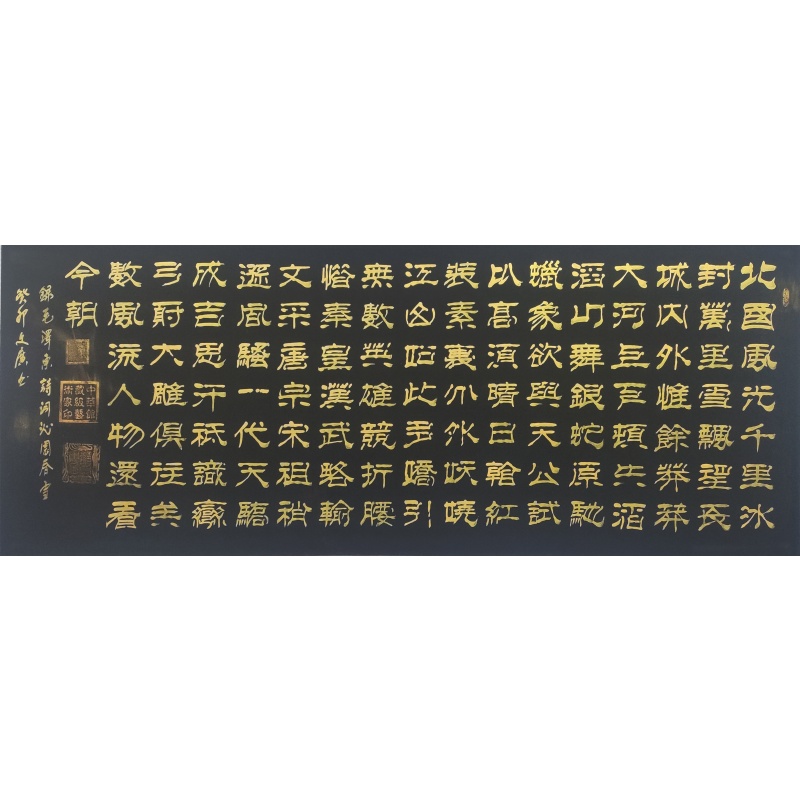 北國風光千里冰
封萬里雪飄望長
城內外惟餘莽莽
大河上下頓失滔
滔山舞銀蛇原馳
蠟象欲與天公試
比高須晴日看紅
裝素裹分外妖嬈
江山如此多嬌引
無數英雄競折腰
惜秦皇漢武略輸
文采唐宗宋祖稍
遜風騷一代天驕
成吉思汗祇識彎
弓射大雕俱往矣
數風流人物還看
今朝
錄毛澤東詩詞沁園春雪
癸卯文廣書
中華館
藏級藝
術家印